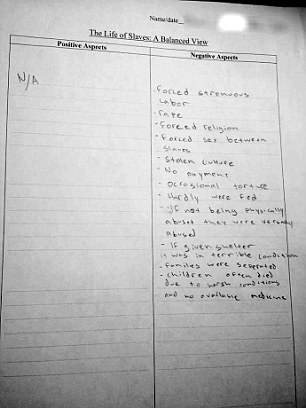 Name/date
The Life of Slaves: A Balanced View
Positive Aspects
Negative Aspects
N/A
-forced strenuous
labor
-rape
-forced religion
-forced sex between
slaves
-stolen culture
-No payment
-occasional torture
-Hardly were fed
-If not being physically
abuset they were verbally
abused
-If given shelter
it was in terrible condition
-families were seperated
-children often died
due to harsh conditions
and no available medicine